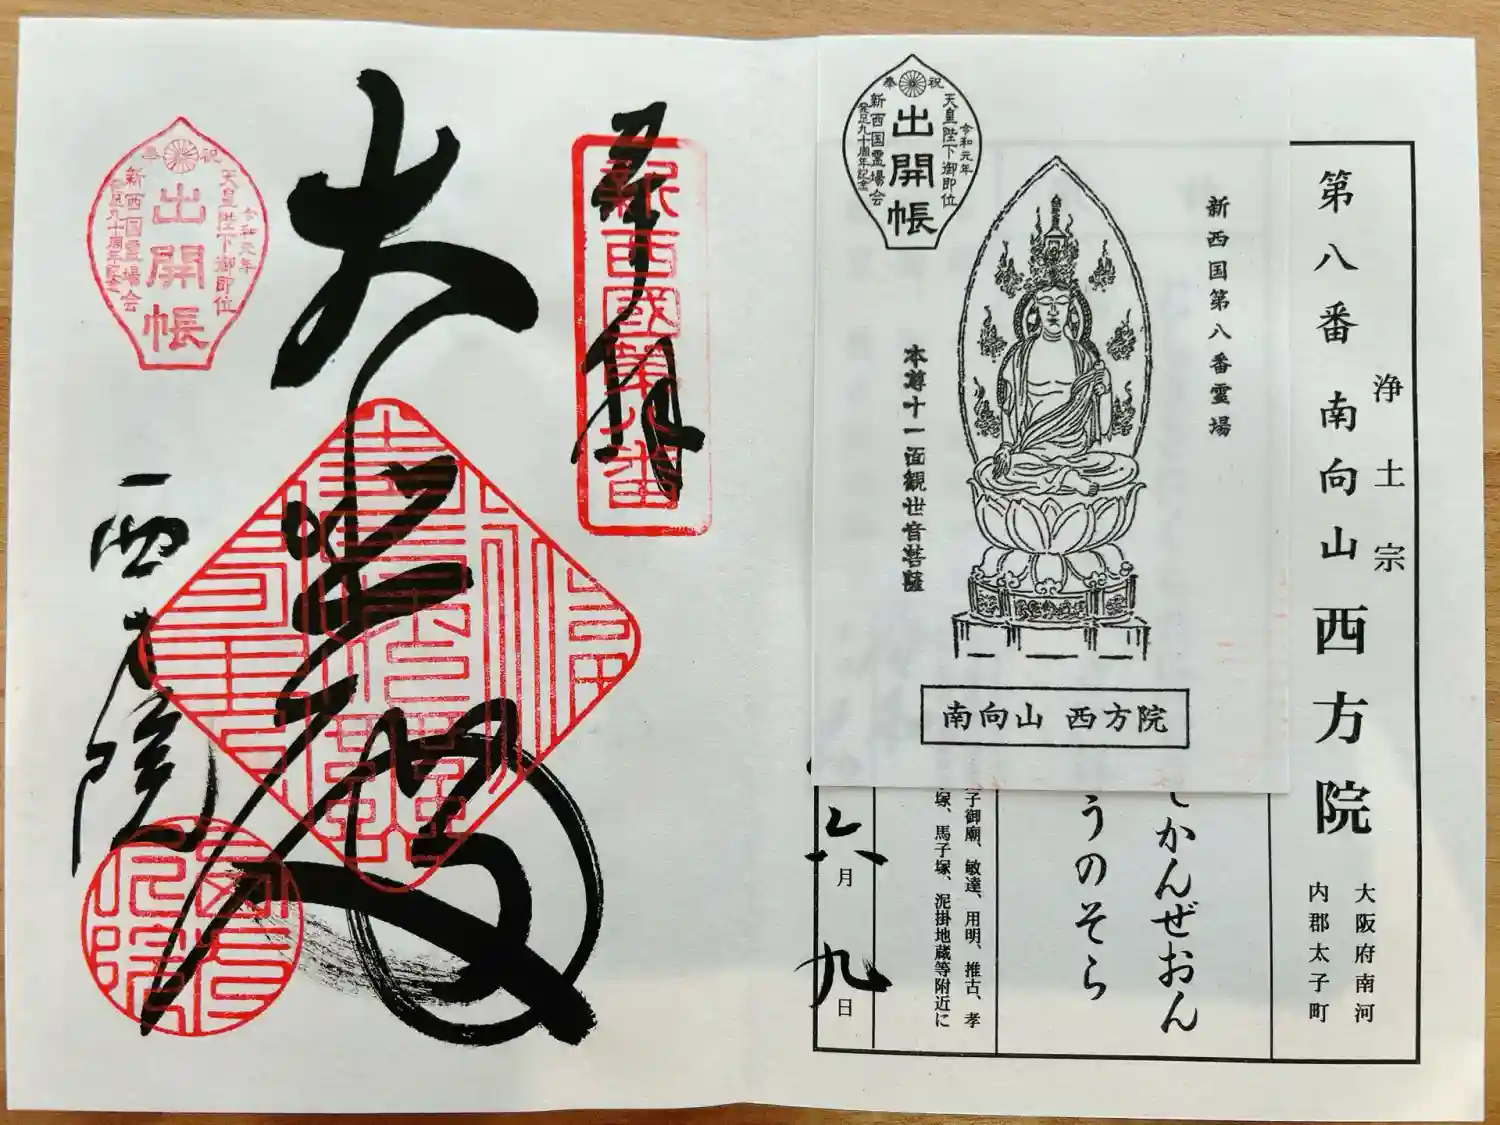 第八番 南向山 西方院
浄土宗
大阪府南河
内郡太子町
かんぜおん
うのそら
子御廟、敏達、用明、推古、孝
塚、馬子塚、泥掛地蔵等附近に
六月九日
新西国第八番霊場
本尊十一面観世音菩薩
南向山 西方院
奉祝
令和元年
天皇陛下御即位
出開帳
新西国霊場会
発足九十周年記念
奉拝
新西國第八番
大悲殿
西方院
奉祝
令和元年
天皇陛下御即位
出開帳
新西国霊場会
発足九十周年記念